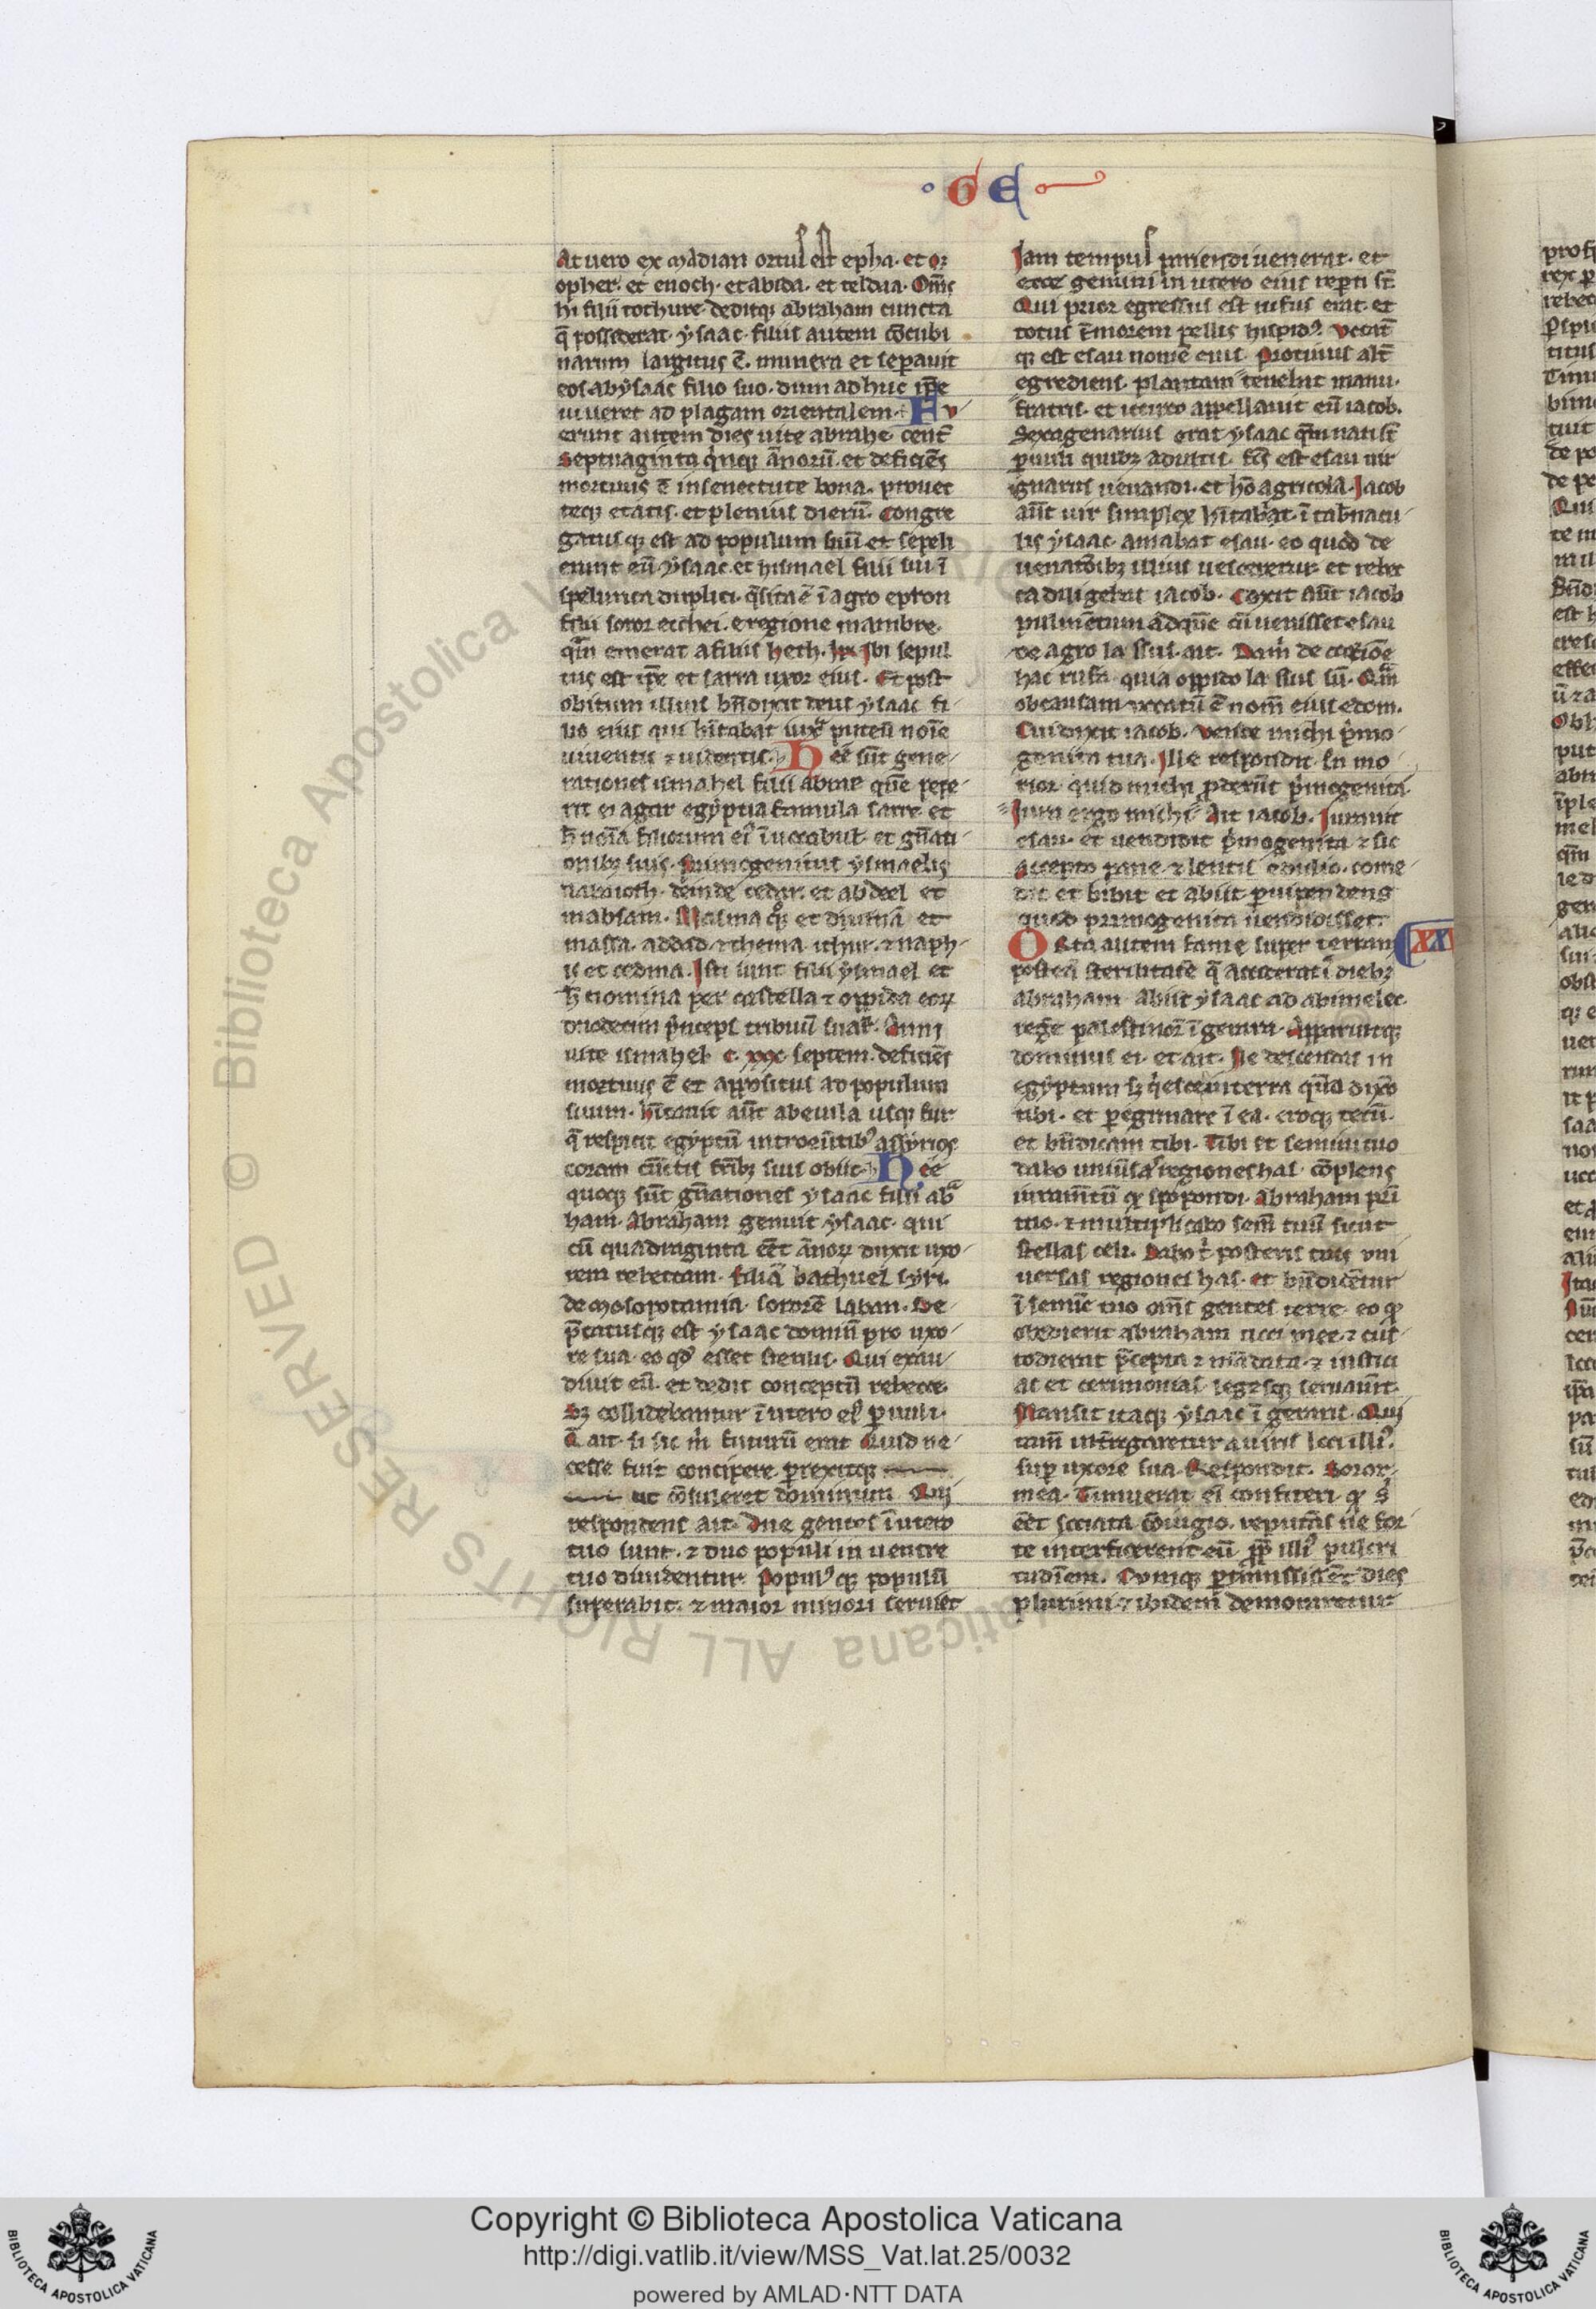 GE
At uero ex madian ortus est epha. et or
opher. et enoch. et abida. et teldaa. Om̄s
hi filii cethure. deditq; abraham cuncta
q̄ possederat. ysaac. filiis autem cōcubi
narum largitus ē. munera et sepauit
eos ab ysaac filio suo. dum adhuc ip̄e
uiueret ad plagam orientalem. Fu
erunt autem dies uite abrahe cent̄
septuaginta q̇nq; ānorū. et deficiēs
mortuus ē in senectute bona. prouec
teq; etatis. et plenius dierū. Congre
gatus q; est ad populum suū et sepeli
erunt eū ysaac. et hismael filii sui ī
spelunca duplici. q̄ sita ē ī agro epron
filii soror ecthei. e regione mambre.
quā emerat a filiis heth. Ibi sepul
tus est ip̄e et sarra uxor eius. Et post
obitum illius bn̄dixit deus ysaac fi
lio eius qui hītabat iuxͣ puteū noīe
uiuentis ⁊ uidentis. Hee sūt gene
rationes ismahel filii abrae quē pepe
rit ei agar egyptia famula sarre et
h̄ noīa filiorum ei⁹ ī uocabul. et gn̄ati
onibꝫ suis. Primogenitus ysmaelis
nabaioth. deinde cedar. et abdeel et
mabsam. Masma q̊ꝫ et dumā et
massa. addad. ⁊ thema ithur. ⁊ naph
is et cedma. Isti sunt filii ysmael et
h̄ nomina per castella ⁊ oppida eoꝝ
duodecim p̄nceps tribuū suaꝝ. Anni
uite ismahel. c. xxx. septem. deficiēs
mortuus ē et appositus ad populum
suum. hītauit aūt ab euila usq; sur
q̄ respicit egyptū introeūtib⁹ assyrios
coram cūctis fr̄ibꝫ suis obiit. Hee
quoq; sūt gn̄ationes ysaac filii abͣ
ham. Abraham genuit ysaac. qui
cū quadraginta eēt ānoꝝ duxit uxo
rem rebeccam. filiā bathuel syri.
de mosopotamia. sororē laban. De
p̄catusq; est ysaac dominū pro uxo
re sua. eo qd̄ esset sterilis. Qui exau
diuit eū. et dedit conceptū rebecce.
Sꝫ collidebantur ī utero ei⁹ puuli.
Q̄ ait. si sic m̄ futurū erat Quid ne
cesse fuit concipere. perrexitq;
ut cōsuleret dominum. Qui
respondens ait. Due gentes ī utero
tuo sunt. ⁊ duo populi in uentre
tuo diuidentur. Popul⁹ q; populū
superabit. ⁊ maior minori seruiet
Iam tempus pariendi uenerat. et
ecce gemini in utero eius repti sūt
Qui prior egressus est rufus erat. et
totus ī morem pellis hispid⁹. Vocat̄
q; est esau nomē eius. Protinus alt̄
egrediens. plantam tenebat manu.
fratris. et iccirco appellauit eū iacob.
Sexagenarius erat ysaac qn̄ nati st̄
puuli quibꝫ adultis. fc̄s est esau uir
gnarus uenandi. et hō agricola. Iacob
aūt uir simplex hītabat. ī tab̄nacu
lis ysaac. amabat esau. eo quod de
uenatōibꝫ illius uesceretur. et rebec
ca diligebat iacob. Coxit aūt iacob
pulmētum ad quē cū uenisset esau
de agro lassus. ait. Da m̄ de coctiōe
hac rufa. quia oppido lassus sū. Quā
ob causam uocatū ē nom̄ eius edom.
Cui dixit iacob. Vende michi p̄mo
genita tua. Ille respondit. En mo
rior. quid michi pderūt p̄mogenita
Iura ergo michi. Ait iacob. Iurauit
esau. et uendidit p̄mogenita ⁊ sic
accepto pane. ⁊ lentis edulio. come
dit et bibit et abiit. paruipendens
quod primogenita uendidisset.
Orta autem fame super terram XX
post eā sterilitatē q̄ acciderat ī diebꝫ
abraham abiit ysaac ad abimelec
regē palestinoꝝ ī gerara. Apparuitq;
dominus ei. et ait. Ne descendas in
egyptum sꝫ q̇esce in terra quā dixo
tibi. et peginare ī ea. eroq; tecū.
et bn̄dicam tibi. Tibi et semini tuo
dabo uniūsas regiones has. cōplens
iuramētū qd̄ spopondi. Abraham pr̄i
tuo. ⁊ multiplicabo sem̄ tuū sicut
stellas celi. Dabo t̄ posteris tuis vni
uersas regiones has. et bn̄dicētur
ī semīe tuo om̄s gentes terre. eo qd̄
obedierit abraham uoci mee. ⁊ cus
todierit p̄cepta ⁊ mādata. ⁊ iustici
as et cerimonias. legesq; seruauit.
Mansit itaq; ysaac ī geraris. Qui
cum int̄rogaretur a uiris loci illi⁹.
sup uxore sua. Respondit. Soror
mea. Timuerat ei confiteri. qd̄ s̄
eēt sociata cōiugio. reputās ne for
te interficerent eū. pp̄ illi⁹ pulcri
tudinem. Cumq; ptransissēt dies
plurimi. ⁊ ibidem demoraretur
Copyright © Biblioteca Apostolica Vaticana
http://digi.vatlib.it/view/MSS_Vat.lat.25/0032
powered by AMLAD·NTT DATA